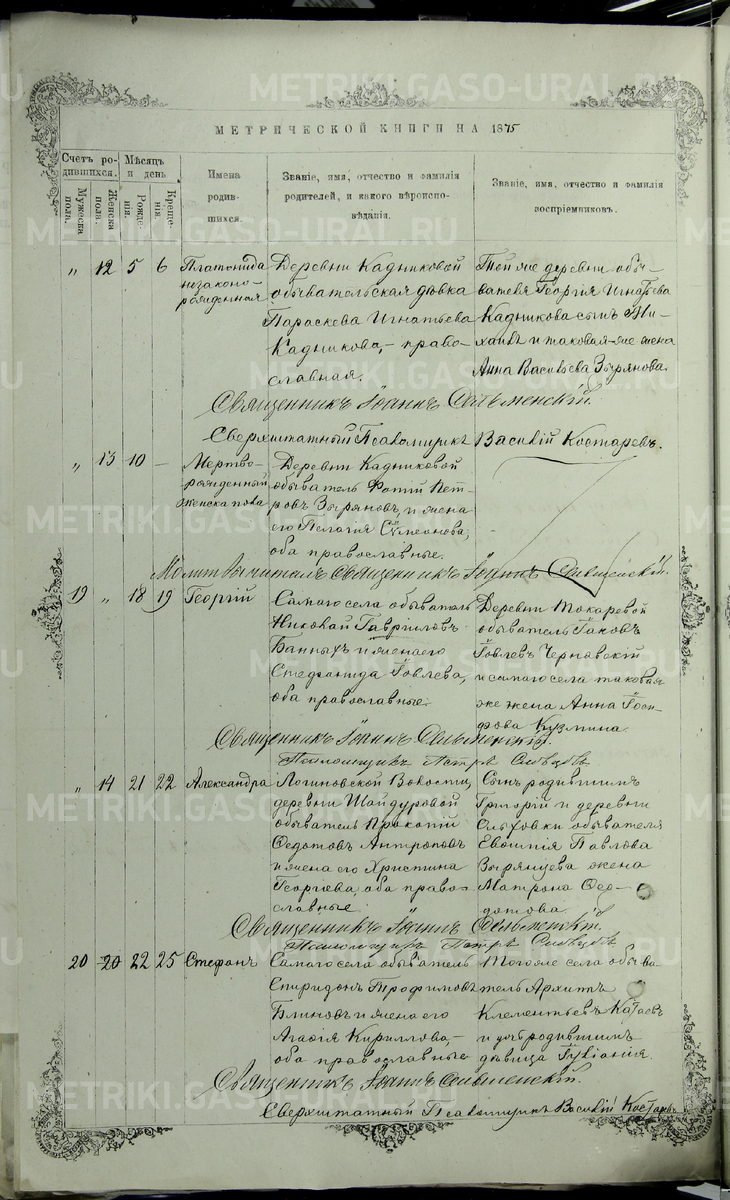 METRIKI.GASO-URAL.RU
МЕТРИЧЕСКОЙ КНИГИ НА 1875
Счетъ родившихся.
Мужеска пола.
Женска пола.
Мѣсяцъ и день
Рожденія.
Крещенія.
Имена родившихся.
Званіе, имя, отчество и фамилія родителей, и какого вѣроисповѣданія.
Званіе, имя, отчество и фамилія воспріемниковъ.
„ 12 5 6
Платонида
незаконорожденная
Деревни Кадниковой
обывательская дѣвка
Параскева Игнатьева
Кадникова, – православная.
Той же деревни обывателя Георгія Игнатьева
Кадникова сынъ Михаилъ и таковая же жена
Анна Васильева Зырянова.
Священникъ Іоаннъ
Сверхштатный Псаломщикъ Василій Костаревъ.
„ 13 10 –
Мертворожденный
женска пола
Деревни Кадниковой
обыватель Фотій Петровъ Зыряновъ, и жена
его Пелагія Сѵмеонова,
оба православные.
Молитв. Священникъ Іоаннъ
19 „ 18 19
Георгій
Самаго села обыватель
Николай Гавріиловъ
Банныхъ и жена его
Стефанида Іовлева,
оба православные.
Деревни Токаревой
обыватель Іаковъ
Іовлевъ Чернавскій
и самаго села таковая
же жена Анна Іосифова Кузмина.
Священникъ Іоаннъ
Псаломщикъ Петръ
„ 14 21 22
Александра
Логиновской Волости,
деревни Шайдуровой
обыватель Прокопій
Федотовъ Антроповъ
и жена его Христина
Георгіева, оба православные.
Сынъ родившимъ
Григорій и деревни
Ольховки обывателя
Евѳимія Павлова
Зырянцева жена
Матрона Федотова.
Священникъ Іоаннъ
Псаломщикъ Петръ
20 20 22 25
Стефанъ
Самаго села обыватель
Спиридонъ Трофимовъ
Блиновъ и жена его
Агафія Кириллова, –
оба православные
Тогоже села обыватель Архипъ
Клементьевъ Катаевъ
и дочь родившимъ
дѣвица Іуліанія.
Священникъ Іоаннъ
Сверхштатный Псаломщикъ Василій Костаревъ